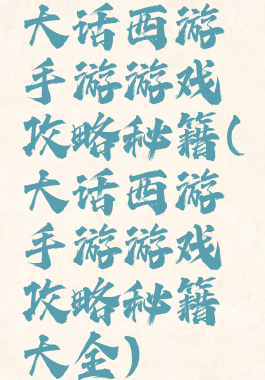 大话西游
手游游戏
攻略秘籍(
大话西游
手游游戏
攻略秘籍
大全)